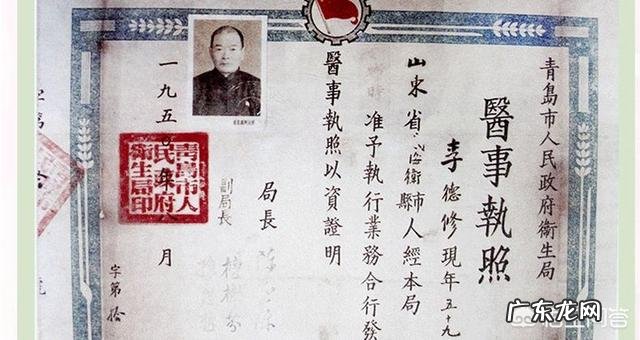 青島市人民政府衛生局
醫事執照
李德修現年五十九
山東省海衛縣市人經本局
准予執行業務合行發
醫事執照以資證明
局長
副局長
字第拾
一九五 月
青島市人民政府衛生局印
广东龙网